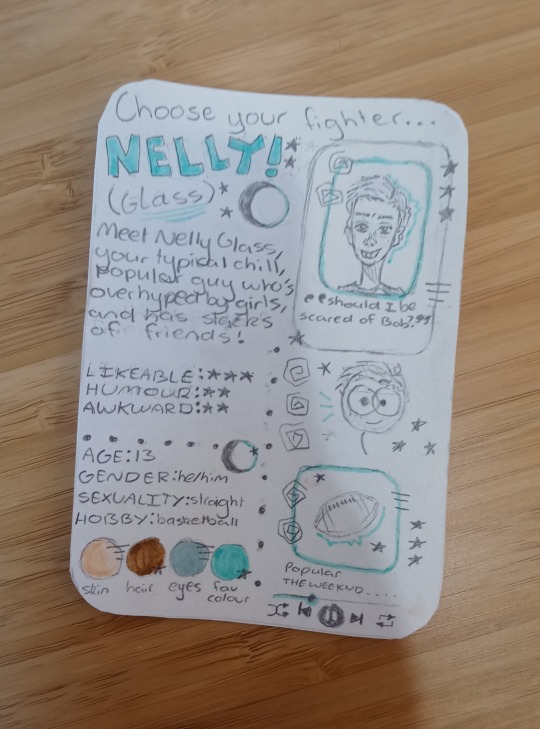 Choose your fighter...
NELLY!
(Glass)
Meet Nelly Glass,
your typical chill,
popular guy who's
overhyped by girls,
and has stacks
of friends!
LIKEABLE:★★★
HUMOUR:★★
AWKWARD:★★
AGE:13
GENDER:he/him
SEXUALITY:straight
HOBBY:basketball
skin hair eyes fav
colour
"should I be
scared of Bob?"
Popular
THE WEEKND....